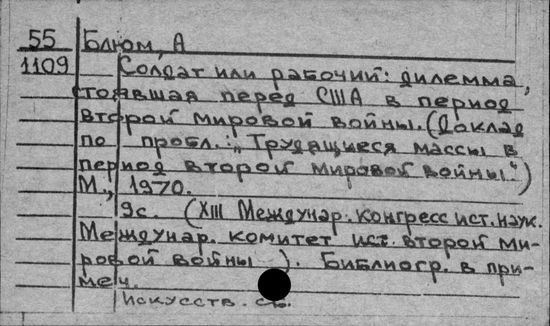 55 Блюм, А
1109 Солдат или рабочий: дилемма,
стоявшая перед США в период
второй мировой войны. (Доклад
по пробл.: "Трудящиеся массы в
период второй мировой войны.")
М., 1970.
9с. (XIII Междунар. конгресс ист. наук.
Междунар. комитет ист. второй ми-
ровой войны). Библиогр. в при-
меч.
Искусств.